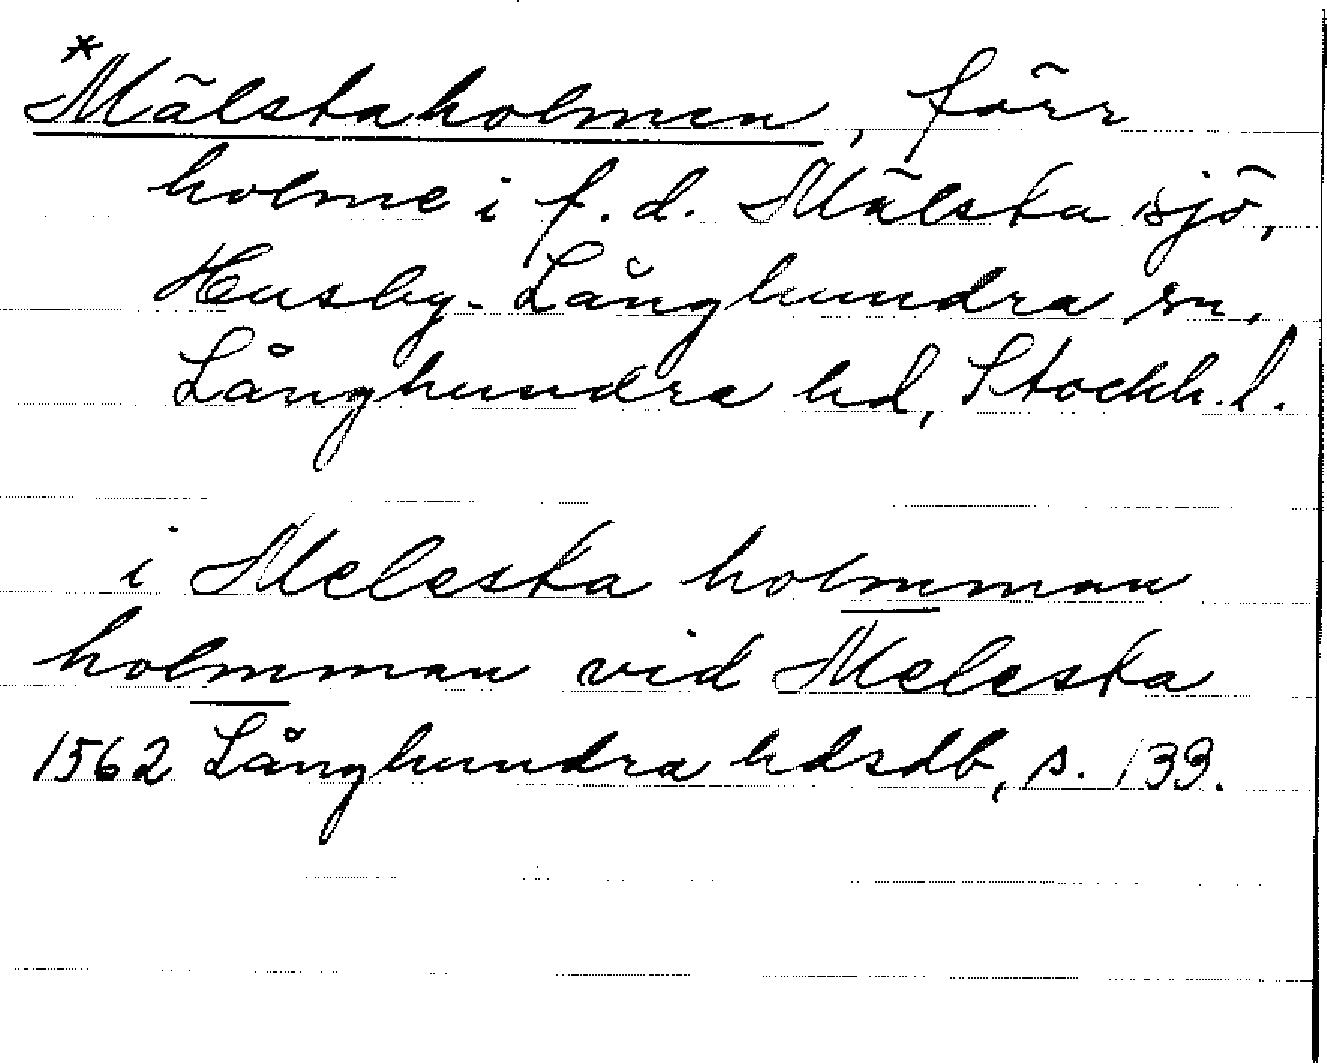 *Mälstaholmen, förr
holme i f.d. Mälsta sjö,
Husby-Långhundra sn,
Långhundra hd, Stockh. l.
i Melesta holmman
holmman vid Melesta
1562 Långhundra hdsdb, s. 133.